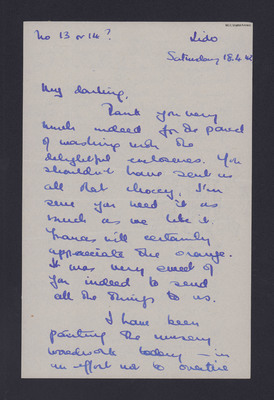 No 13 or 14? Lido
Saturday 18.4.42
My darling,
Thank you very
much indeed for the parcel
of washing with the
delightful enclosures. You
shouldn't have sent us
all that choccy, I'm
sure you need it as
much as we like it.
Frances will certainly
appreciate the orange.
It was very sweet of
you indeed to send
all the things to us.
I have been
painting the nursery
woodwork today – in
an effort not to overtire